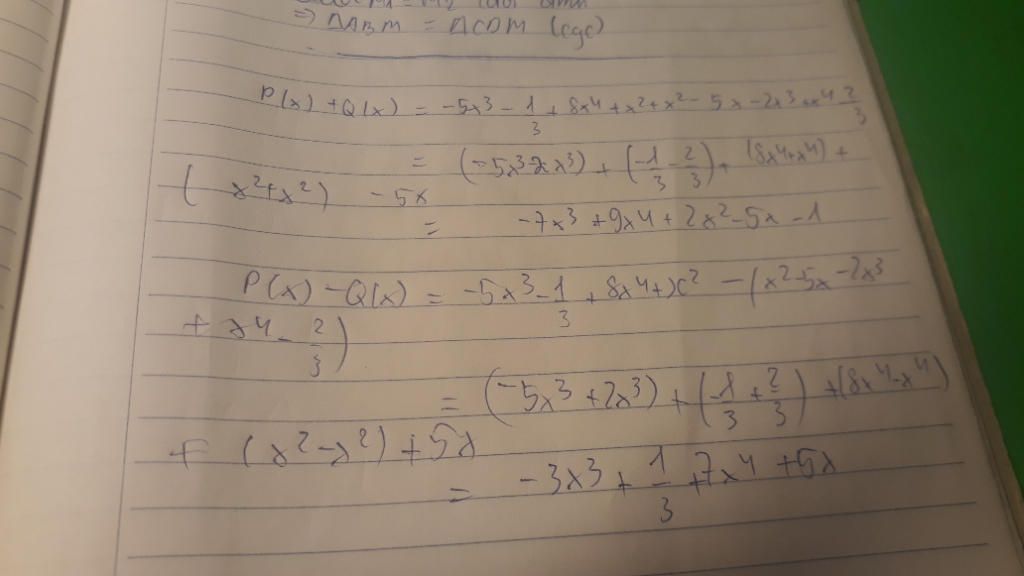 ⇒ ΔABM = ΔCDM (cgc)
P(x) + Q(x) = -5x³ - 1/3 + 8x⁴ + x² + x² - 5x - 2x³ + x⁴ 2/3
= (-5x³-2x³) + (-1/3 - 2/3) + (8x⁴+x⁴) +
( x²+x²) - 5x
= -7x³ + 9x⁴ + 2x² - 5x - 1
P(x) - Q(x) = -5x³ - 1/3 + 8x⁴ + x² - (x² - 5x - 2x³
+ x⁴ - 2/3)
= (-5x³ + 2x³) + (-1/3 + 2/3) + (8x⁴ - x⁴)
+ (x² - x²) + 5x
= -3x³ + 1/3 + 7x⁴ + 5x